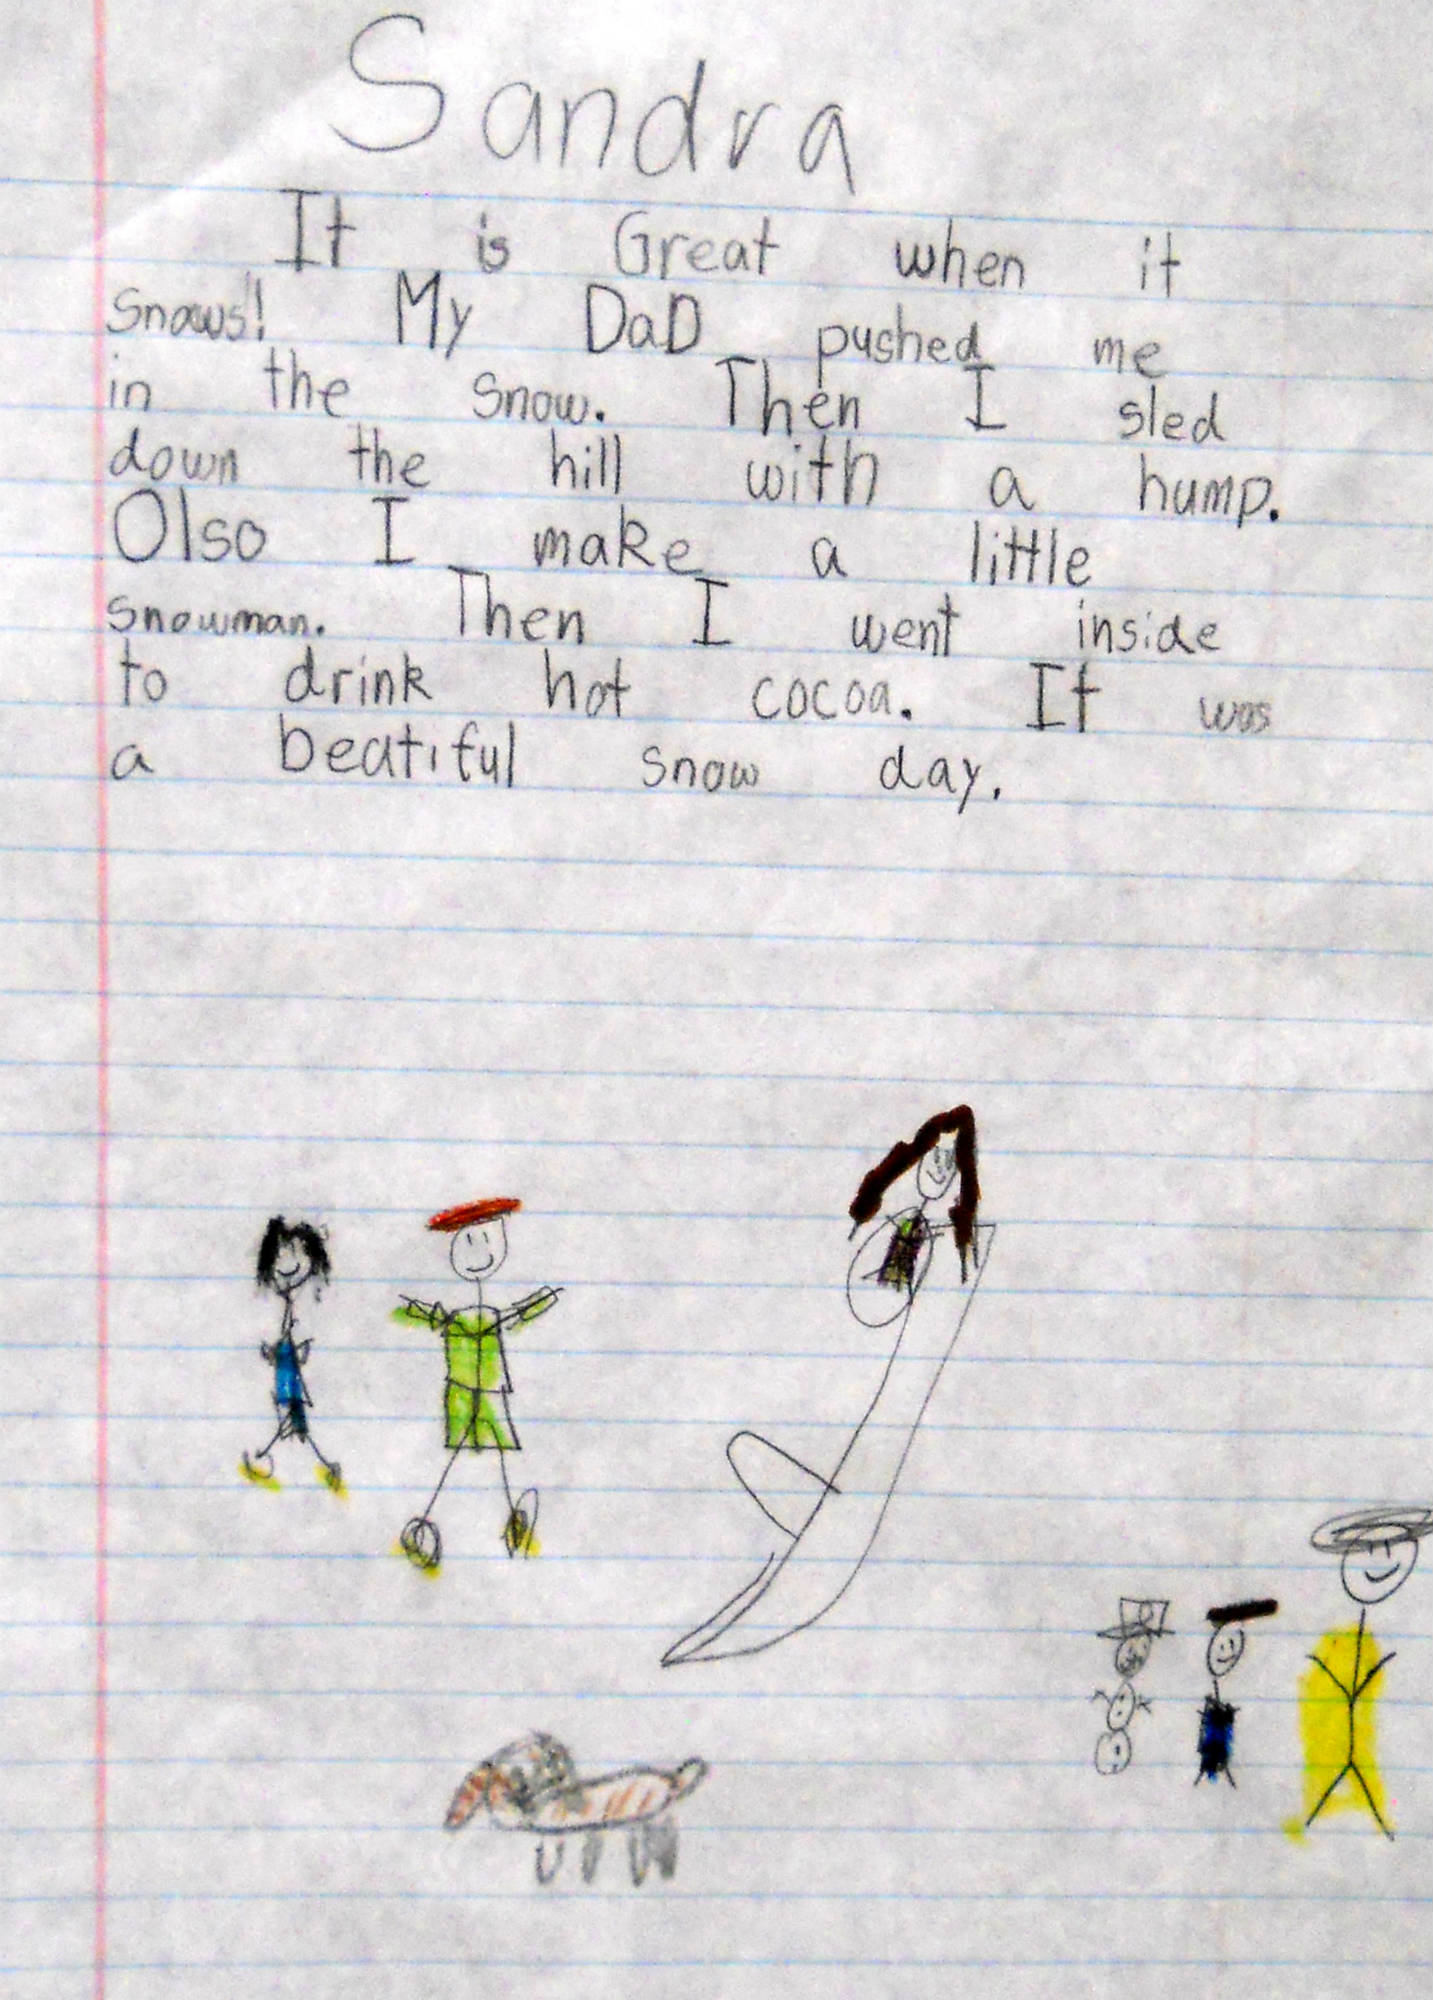 Sandra
It is Great when it
snows! My DaD pushed me
in the snow. Then I sled
down the hill with a hump.
Olso I make a little
snowman. Then I went inside
to drink hot cocoa. It was
a beatiful snow day.